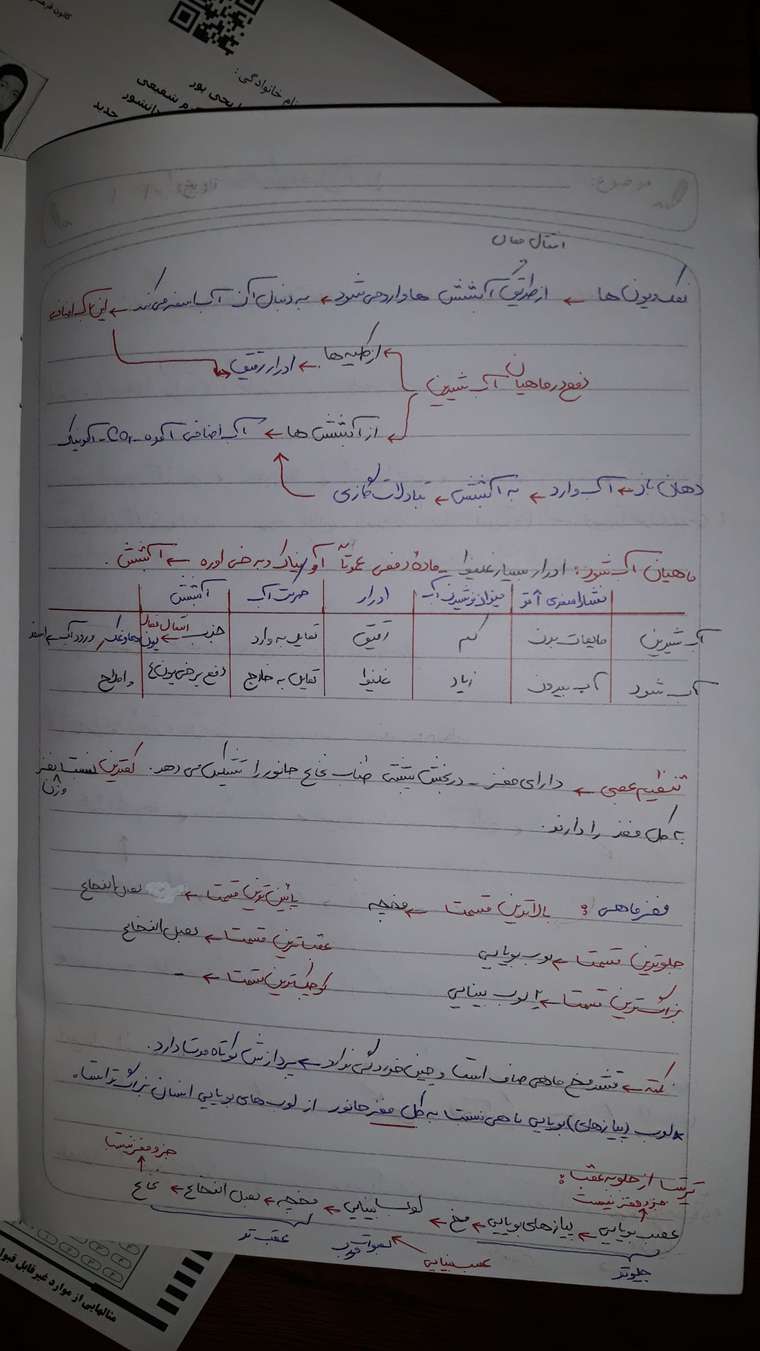 کانون فرهنگی
نام خانوادگی:
یحیی پور
دانشور
جدید
موضوع:
تاریخ: / /
انتقال فعال
نمک و یون ها ← از طریق آبشش ها وارد می شود ← به دنبال آن آب اسمز می کند ← این آب اضافی
دفع در ماهیان آب شیرین
از کلیه ها ← ادرار رقیق
از آبشش ها ← آب اضافی آلوده - CO₂ - آمونیاک
دهان باز ← آب وارد ← به آبشش ← تبادلات گازی
ماهیان آب شور: ادرار بسیار غلیظ - ماده دفعی عموماً آمونیاک و برخی اوره ← آبشش.
فشار اسمزی ↑تر میزان نوشیدن آب ادرار حرکت آب آبشش
آب شیرین مایعات بدن کم رقیق تمایل به وارد جذب انتقال فعال یون ها و نمک ورود آب با اسمز
آب شور آب بیرون زیاد غلیظ تمایل به خارج دفع برخی یون ها
تنظیم عصبی ← دارای مغز - در بخش پشتی طناب نخاع جانور را تشکیل می دهد. کمترین نسبت مغز
وزن
به کل مغز را دارند.
مغز ماهی: بالاترین قسمت ← مخچه پائین ترین قسمت ← بصل النخاع
جلوترین قسمت ← لوب بویایی عقب ترین قسمت ← بصل النخاع
بزرگ ترین قسمت ← ۲ لوب بینایی کوچک ترین قسمت ← -
نکته ← قشر مخ ماهی صاف است و چین خوردگی ندارد ← پردازش کوتاه مدت دارد.
* لوب (پیازهای) بویایی ماهی نسبت به کل مغز جانور از لوب های بویایی انسان بزرگ تر است.
ترتیب از جلو به عقب:
جزو مغز نیست
جزو مغز نیست
عصب بویایی ← پیازهای بویایی ← مخ ← لوب بینایی ← مخچه ← بصل النخاع ← نخاع
جلوتر
عصب بینایی
عقب تر